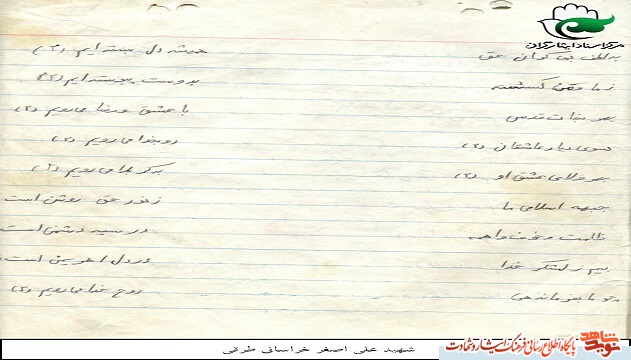 مرکز اسناد ایثارگران
به لطف بی کران حق
چشم دل بسته ایم (۲)
ز ما
به دوست پیوسته ایم (۲)
بهر نجات قدس
با عشق و رضا می رویم (۲)
سوی دیار عاشقان (۲)
رو به خدا می رویم (۲)
بهر ولای عشق او (۲)
به کربلا می رویم (۲)
جبهه اسلامی ما
ز نور حق روشن است
ظلمت و خوف واهمه
در سینه دشمن است
بیم ز لشکر خدا
در دل اهریمن است
روح خدا می رویم (۲)
شهید علی اصغر خراسانی طرقی
نوید شاهد
پایگاه اطلاع رسانی فرهنگ ایثار و شهادت